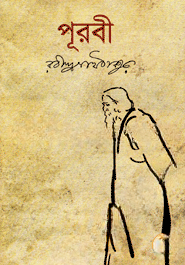 পূরবী
রবীন্দ্রনাথ ঠাকুর